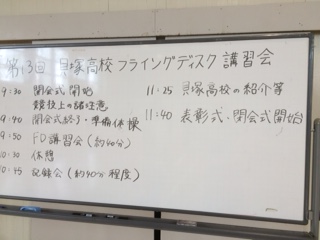 第13回 貝塚高校フライングディスク講習会
9:30 開会式開始
競技上の諸注意
9:40 開会式終了・準備体操
9:50 FD講習会(約40分)
10:30 休憩
10:45 記録会(約40分程度)
11:25 貝塚高校の紹介等
11:40 表彰式・閉会式開始